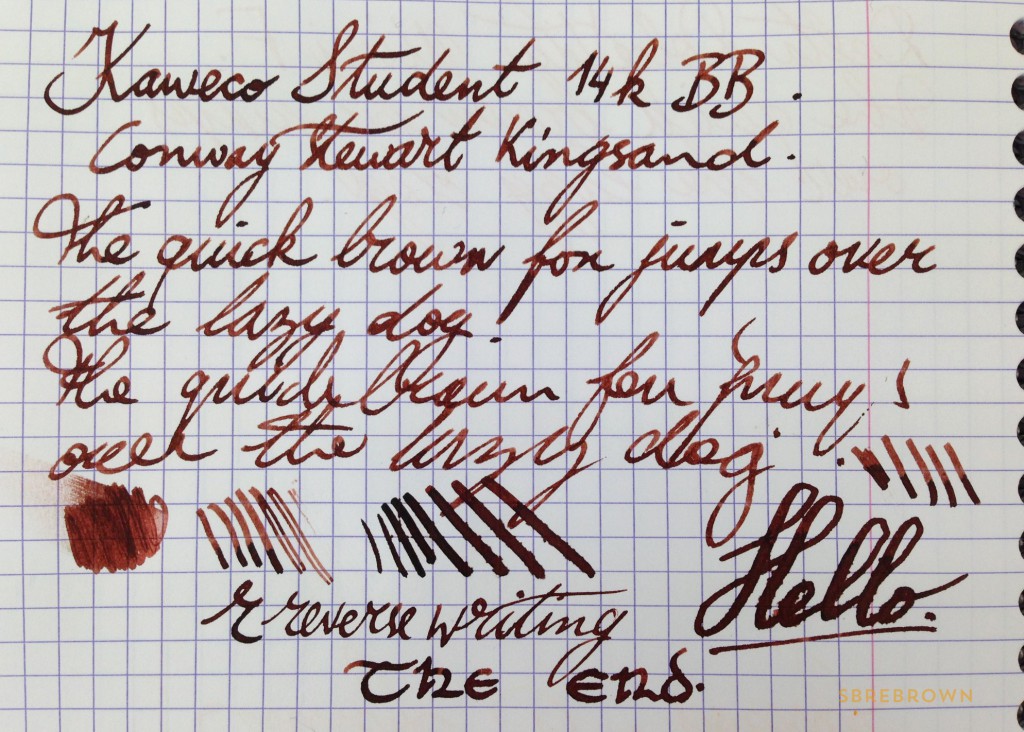 Kaweco Student 14k BB.
Conway Stewart Kingsand.
The quick brown fox jumps over
the lazy dog.
The quick brown fox jumps
over the lazy dog.
Hello.
reverse writing
The end.
SBREBROWN